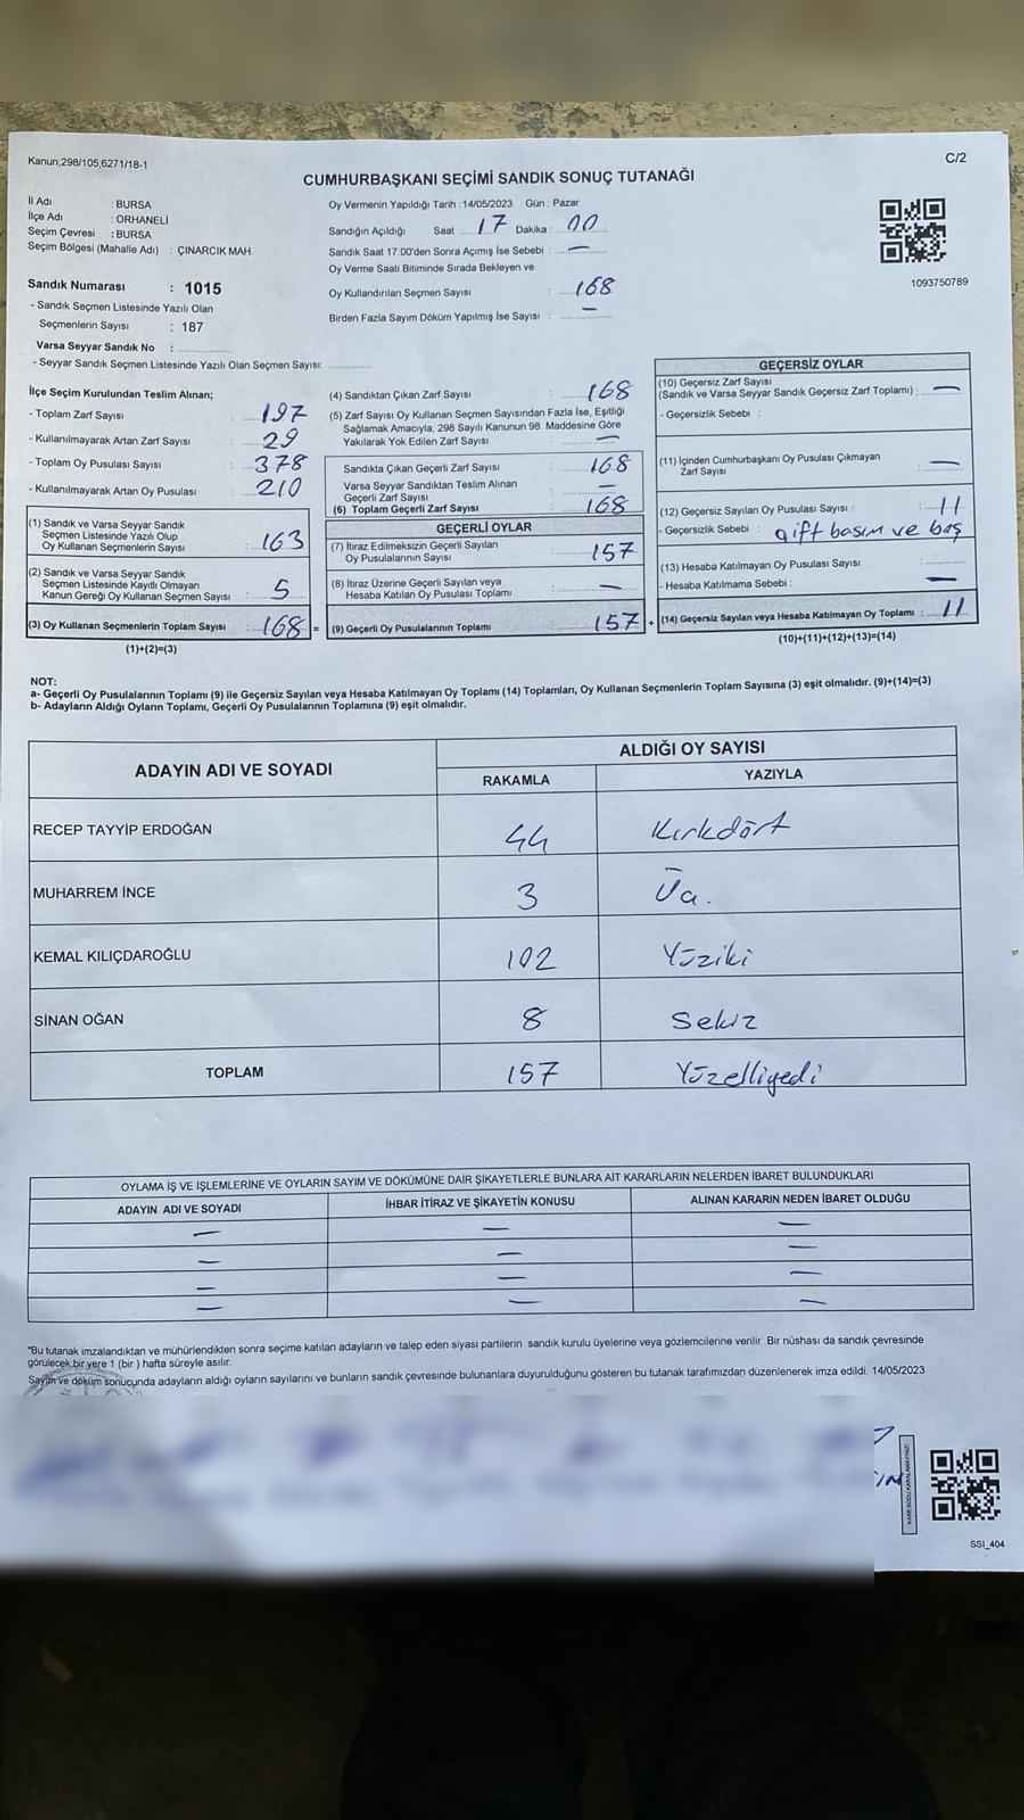 Kanun,298/105,6271/18-1
C/2
CUMHURBAŞKANI SEÇİMİ SANDIK SONUÇ TUTANAĞI
İl Adı : BURSA
İlçe Adı : ORHANELİ
Seçim Çevresi : BURSA
Seçim Bölgesi (Mahalle Adı) : ÇINARCIK MAH.
Sandık Numarası : 1015
- Sandık Seçmen Listesinde Yazılı Olan
Seçmenlerin Sayısı : 187
Varsa Seyyar Sandık No :
- Seyyar Sandık Seçmen Listesinde Yazılı Olan Seçmen Sayısı:
Oy Vermenin Yapıldığı Tarih :14/05/2023 Gün : Pazar
Sandığın Açıldığı Saat 17 Dakika 00
Sandık Saat 17.00'den Sonra Açımış İse Sebebi : —
Oy Verme Saati Bitiminde Sırada Bekleyen ve
Oy Kullandırılan Seçmen Sayısı : 168
Birden Fazla Sayım Döküm Yapılmış İse Sayısı : —
1093750789
İlçe Seçim Kurulundan Teslim Alınan;
- Toplam Zarf Sayısı : 197
- Kullanılmayarak Artan Zarf Sayısı : 29
- Toplam Oy Pusulası Sayısı : 378
- Kullanılmayarak Artan Oy Pusulası : 210
(1) Sandık ve Varsa Seyyar Sandık
Seçmen Listesinde Yazılı Olup
Oy Kullanan Seçmenlerin Sayısı : 163
(2) Sandık ve Varsa Seyyar Sandık
Seçmen Listesinde Kayıtlı Olmayan
Kanun Gereği Oy Kullanan Seçmen Sayısı : 5
(3) Oy Kullanan Seçmenlerin Toplam Sayısı : 168 =
(1)+(2)=(3)
(4) Sandıktan Çıkan Zarf Sayısı : 168
(5) Zarf Sayısı Oy Kullanan Seçmen Sayısından Fazla İse, Eşitliği
Sağlamak Amacıyla, 298 Sayılı Kanunun 98. Maddesine Göre
Yakılarak Yok Edilen Zarf Sayısı : —
Sandıkta Çıkan Geçerli Zarf Sayısı : 168
Varsa Seyyar Sandıktan Teslim Alınan
Geçerli Zarf Sayısı : —
(6) Toplam Geçerli Zarf Sayısı : 168
GEÇERLİ OYLAR
(7) İtiraz Edilmeksizin Geçerli Sayılan
Oy Pusulalarının Sayısı : 157
(8) İtiraz Üzerine Geçerli Sayılan veya
Hesaba Katılan Oy Pusulası Toplamı : —
(9) Geçerli Oy Pusulalarının Toplamı : 157 +
GEÇERSİZ OYLAR
(10) Geçersiz Zarf Sayısı
(Sandık ve Varsa Seyyar Sandık Geçersiz Zarf Toplamı) : —
- Geçersizlik Sebebi :
(11) İçinden Cumhurbaşkanı Oy Pusulası Çıkmayan
Zarf Sayısı : —
(12) Geçersiz Sayılan Oy Pusulası Sayısı : 11
- Geçersizlik Sebebi : çift basım ve boş
(13) Hesaba Katılmayan Oy Pusulası Sayısı :
- Hesaba Katılmama Sebebi : —
(14) Geçersiz Sayılan veya Hesaba Katılmayan Oy Toplamı : 11
(10)+(11)+(12)+(13)=(14)
NOT:
a- Geçerli Oy Pusulalarının Toplamı (9) ile Geçersiz Sayılan veya Hesaba Katılmayan Oy Toplamı (14) Toplamları, Oy Kullanan Seçmenlerin Toplam Sayısına (3) eşit olmalıdır. (9)+(14)=(3)
b- Adayların Aldığı Oyların Toplamı, Geçerli Oy Pusulalarının Toplamına (9) eşit olmalıdır.
ADAYIN ADI VE SOYADI
ALDIĞI OY SAYISI
RAKAMLA YAZIYLA
RECEP TAYYİP ERDOĞAN 44 Kırkdört
MUHARREM İNCE 3 Üç.
KEMAL KILIÇDAROĞLU 102 Yüziki
SİNAN OĞAN 8 Sekiz
TOPLAM 157 Yüzelliyedi
OYLAMA İŞ VE İŞLEMLERİNE VE OYLARIN SAYIM VE DÖKÜMÜNE DAİR ŞİKAYETLERLE BUNLARA AİT KARARLARIN NELERDEN İBARET BULUNDUKLARI
ADAYIN ADI VE SOYADI İHBAR İTİRAZ VE ŞİKAYETİN KONUSU ALINAN KARARIN NEDEN İBARET OLDUĞU
— — —
— — —
— — —
— — —
"Bu tutanak imzalandıktan ve mühürlendikten sonra seçime katılan adayların ve talep eden siyasi partilerin sandık kurulu üyelerine veya gözlemcilerine verilir. Bir nüshası da sandık çevresinde
görülecek bir yere 1 (bir ) hafta süreyle asılır.
Sayım ve döküm sonucunda adayların aldığı oyların sayılarını ve bunların sandık çevresinde bulunanlara duyurulduğunu gösteren bu tutanak tarafımızdan düzenlenerek imza edildi. 14/05/2023
SSI_404